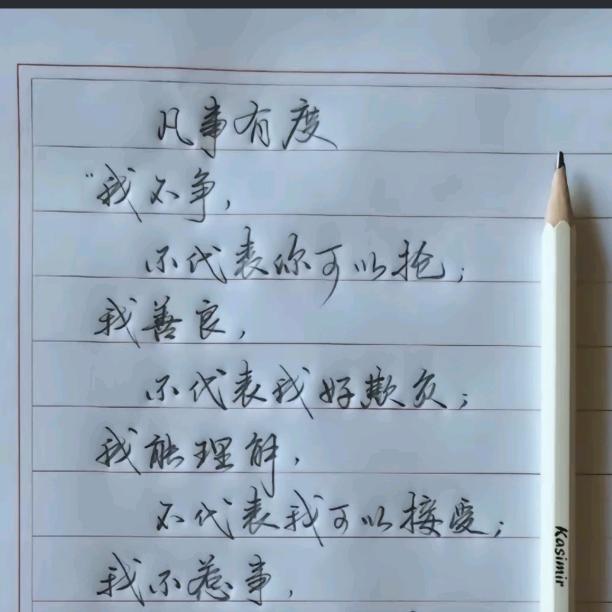 凡事有度
"我不争，
不代表你可以抢；
我善良，
不代表我好欺负；
我能理解，
不代表我可以接受；
我不惹事，
Kasimir